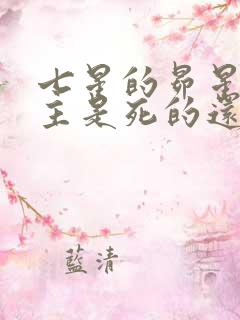 七星的昴星
主是死的還
藍清